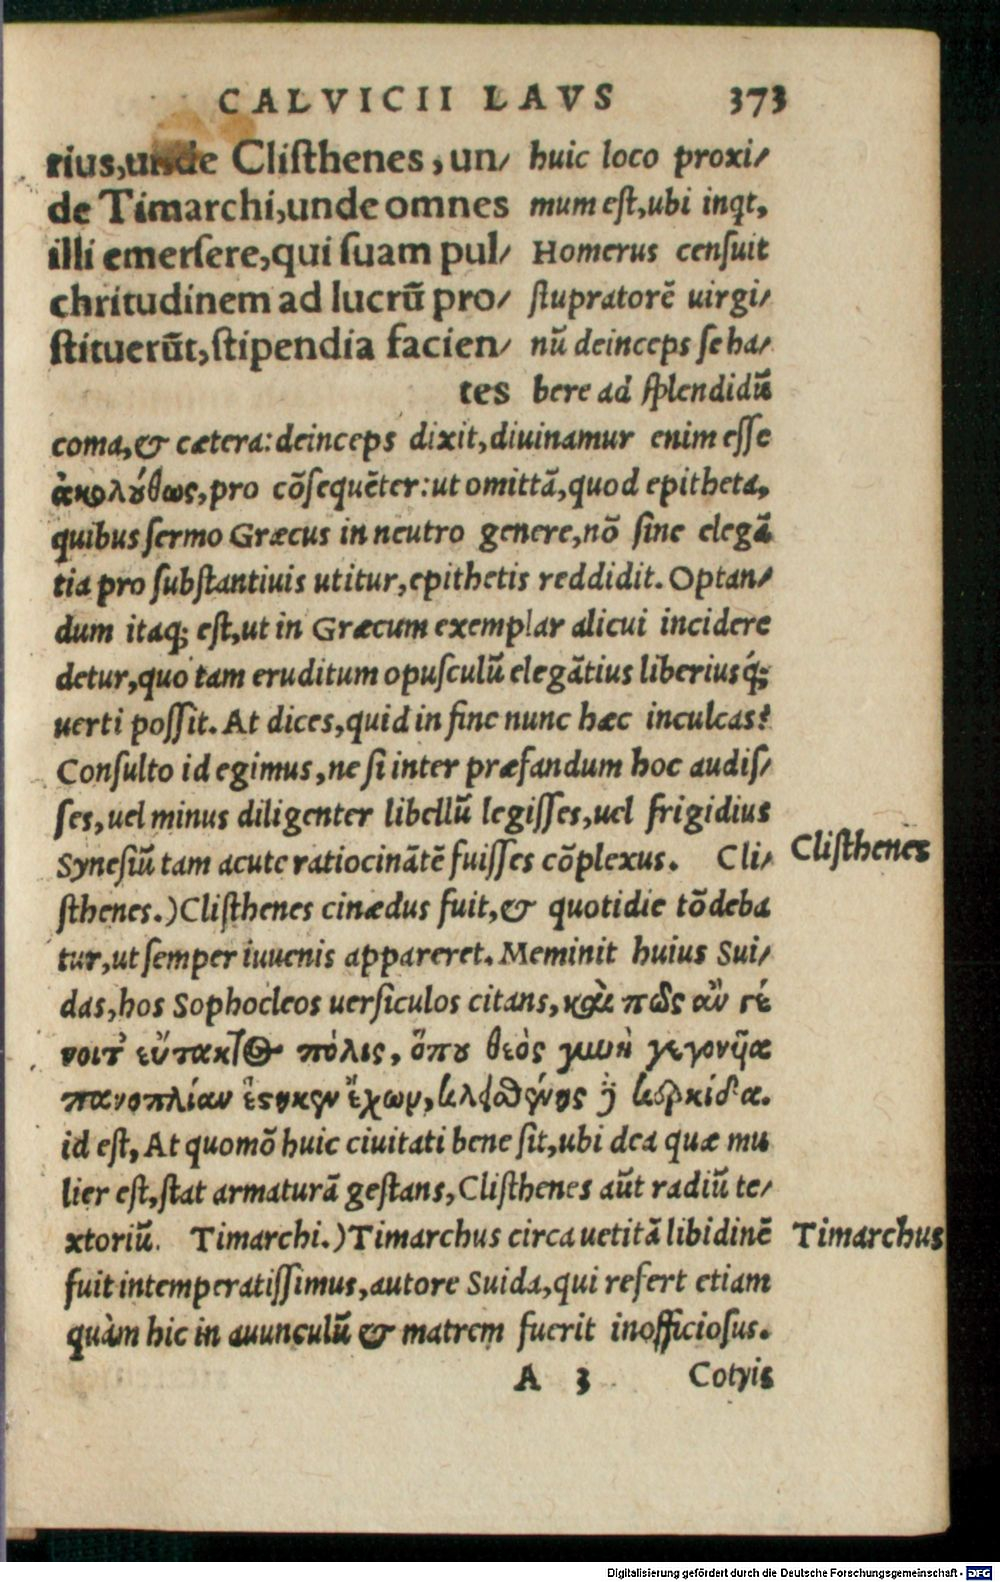 CALVICII LAVS 373
rius, unde Clisthenes, un/
de Timarchi, unde omnes
illi emersere, qui suam pul/
chritudinem ad lucrū pro/
stituerūt, stipendia facien/
tes
huic loco proxi/
mum est, ubi inqt,
Homerus censuit
stupratorē uirgi/
nū deinceps se ha/
bere ad splendidū
coma, & cætera: deinceps dixit, diuinamur enim esse
ἀκολούθως, pro cōsequēter: ut omittā, quod epitheta,
quibus sermo Græcus in neutro genere, nō sine elegā
tia pro substantiuis utitur, epithetis reddidit. Optan/
dum itaq; est, ut in Græcum exemplar alicui incidere
detur, quo tam eruditum opusculū elegātius liberiusq́;
uerti possit. At dices, quid in fine nunc hæc inculcas?
Consulto id egimus, ne si inter præfandum hoc audis/
ses, uel minus diligenter libellū legisses, uel frigidius
Synesiū tam acute ratiocinātē fuisses cōplexus. Cli/
sthenes.) Clisthenes cinædus fuit, & quotidie tōdeba
tur, ut semper iuuenis appareret. Meminit huius Sui/
das, hos Sophocleos uersiculos citans, καὶ πῶς ἂν γέ
νοιτ' εὔτακτος πόλις, ὅπου θεὸς γυνὴ γεγονῆα
πανοπλίαν ἕστηκεν ἔχων, κλεισθένης δὲ κερκίδα.
id est, At quomō huic ciuitati bene sit, ubi dea quæ mu
lier est, stat armaturā gestans, Clisthenes aūt radiū te/
xtoriū. Timarchi.) Timarchus circa uetitā libidinē
fuit intemperatissimus, autore Suida, qui refert etiam
quàm hic in auunculū & matrem fuerit inofficiosus.
A 3 Cotyis
Clisthenes
Timarchus
Digitalisierung gefördert durch die Deutsche Forschungsgemeinschaft - DFG